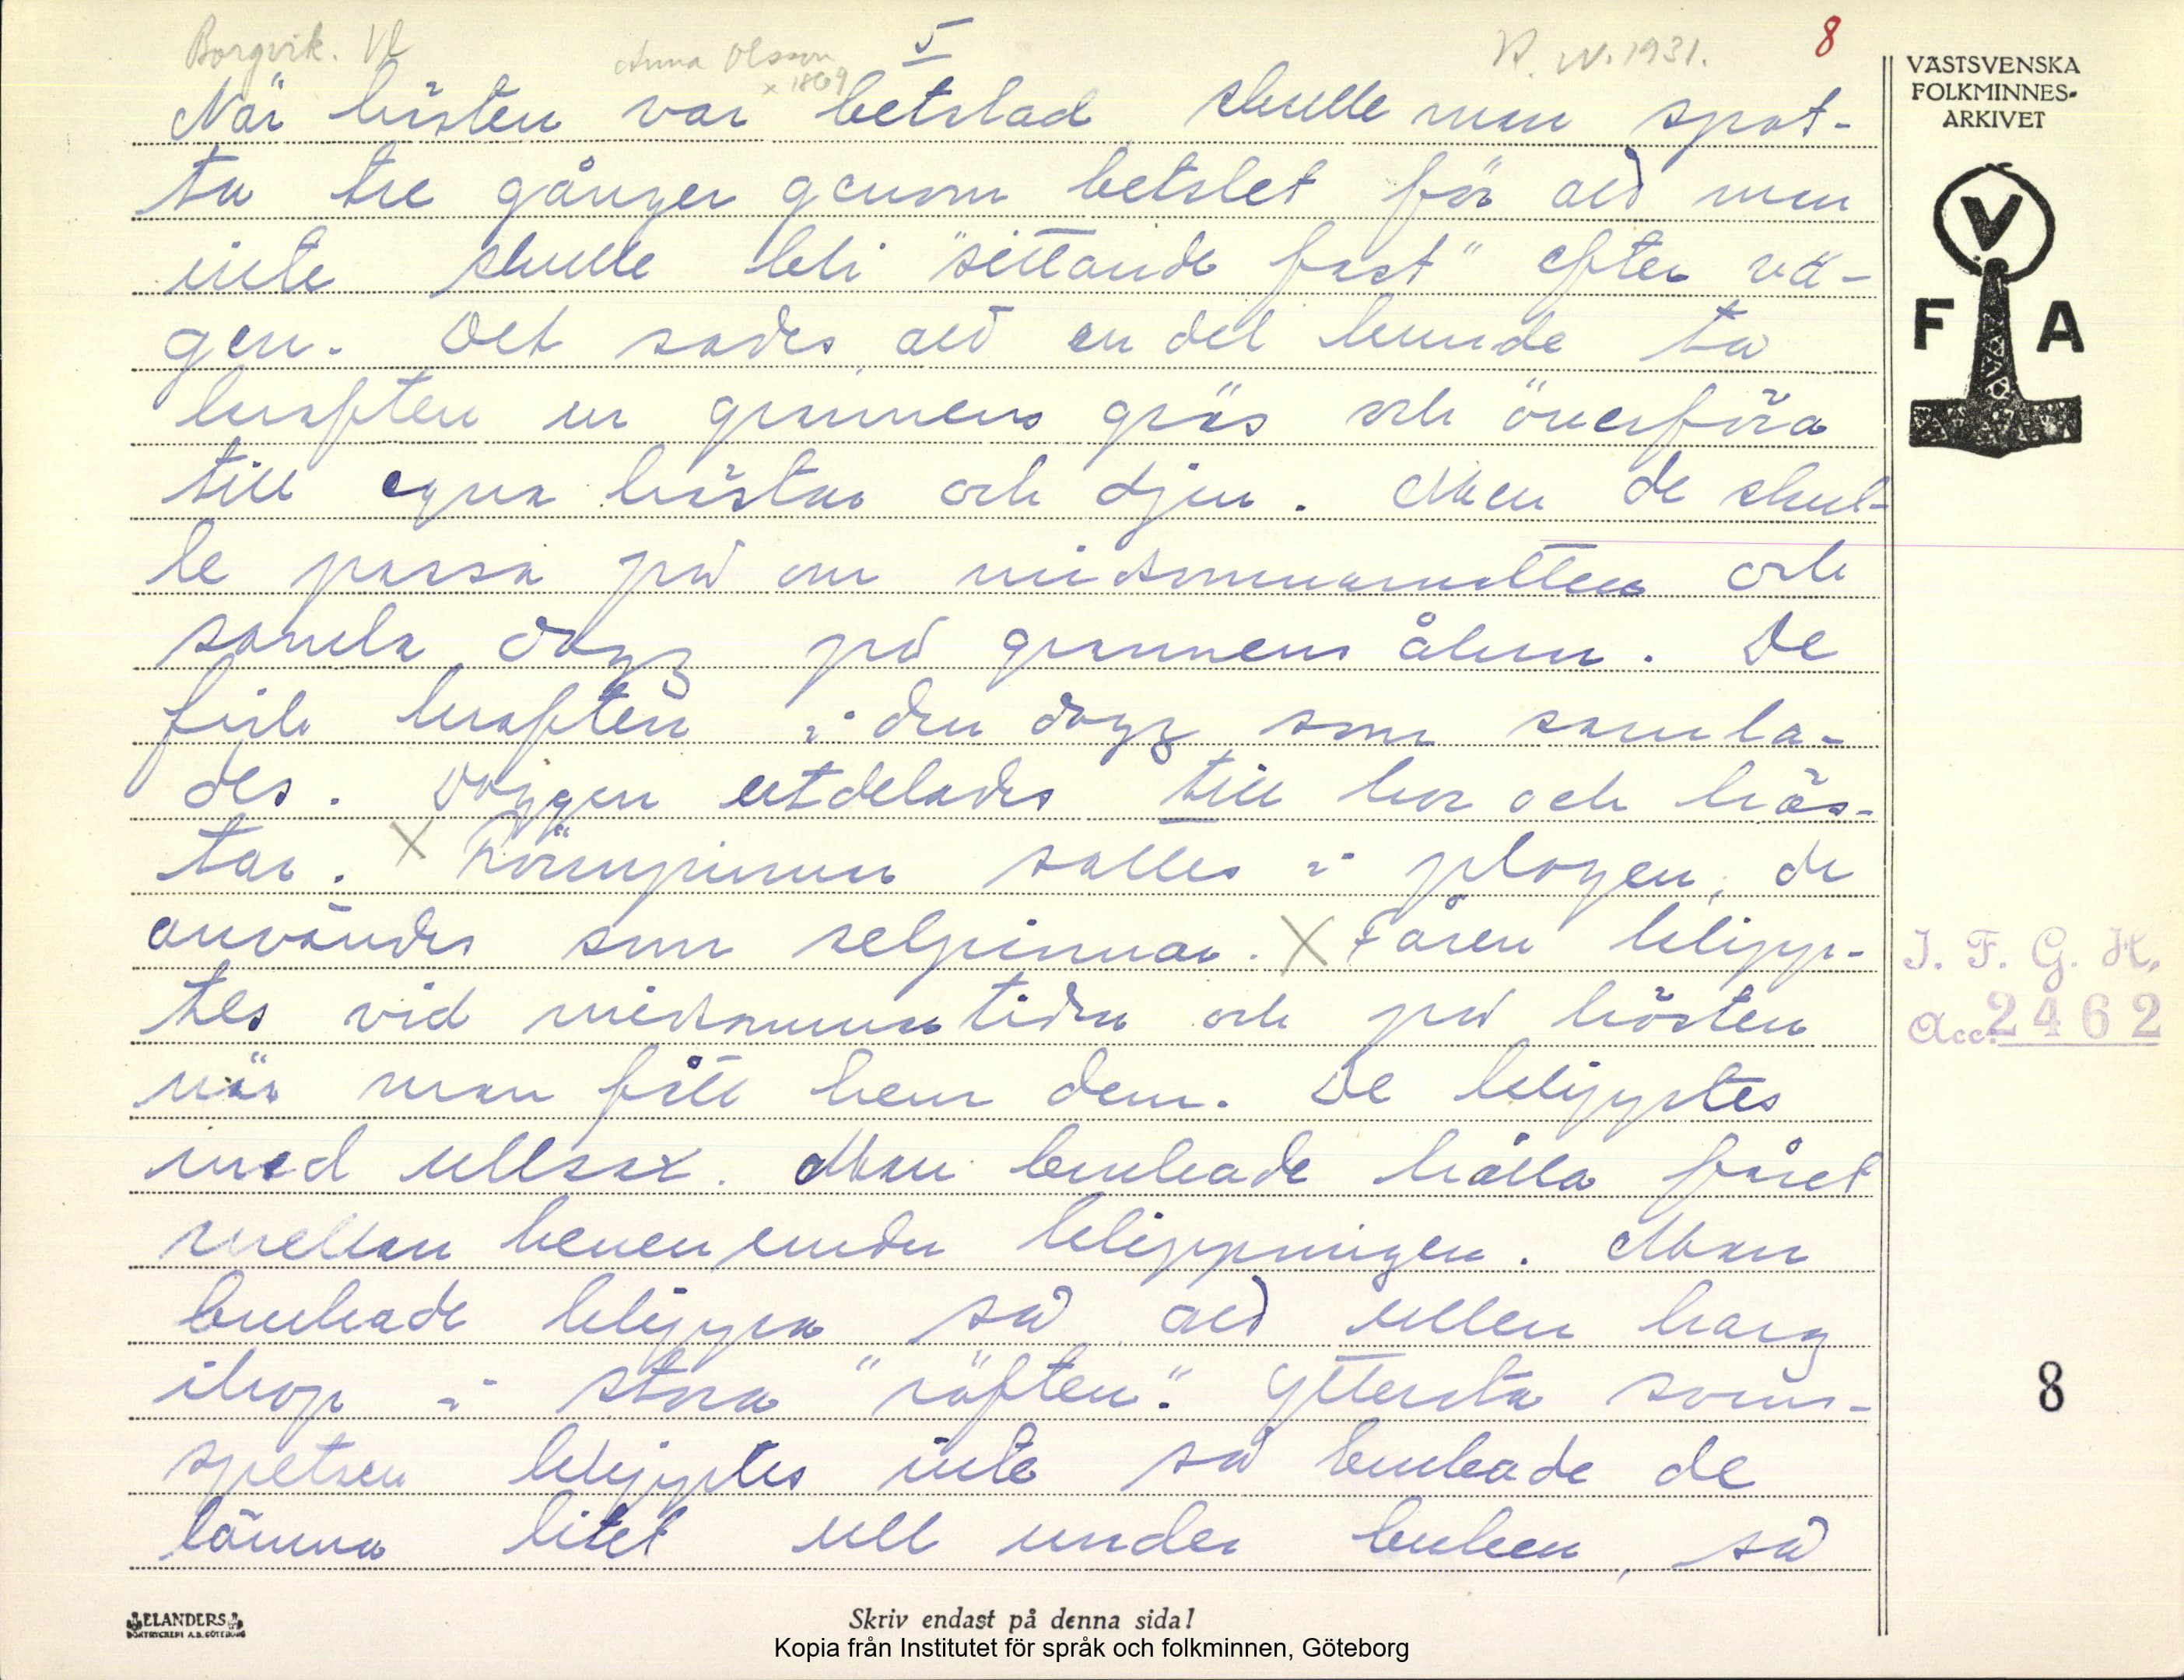 Borgvik. Vl
Anna Olsson
x 1869
5
R. N. 1931.
8
VÄSTSVENSKA
FOLKMINNES-
ARKIVET
V
F A
När hästen var betslad skulle man spot-
ta tre gånger genom betslet för att man
inte skulle bli "sittande fast" efter vä-
gen. Det sades att en del kunde ta
kraften ur grannens gräs och överföra
till egna hästar och djur. Men de skul-
le passa på om midsommarnatten och
samla dagg på grannens åkrar. De
fick kraften i den dagg som samla-
des. Daggen utdelades till kor och häs-
tar. X Rönnpinnar sattes i plogen, de
användes som selpinnar. X Fåren klipp-
tes vid midsommartiden och på hösten
när man fått hem dem. De klipptes
med ullsax. Man brukade hålla fåret
mellan benen under klippningen. Man
brukade klippa så att ullen hang
ihop i stora "röften". Yttersta svans-
spetsen klipptes inte så brukade de
lämna litet ull under buken, så
I. F. G. H.
Acc. 2462
8
ELANDERS
BOKTRYCKERI A.B. GÖTEBORG
Skriv endast på denna sida!
Kopia från Institutet för språk och folkminnen, Göteborg